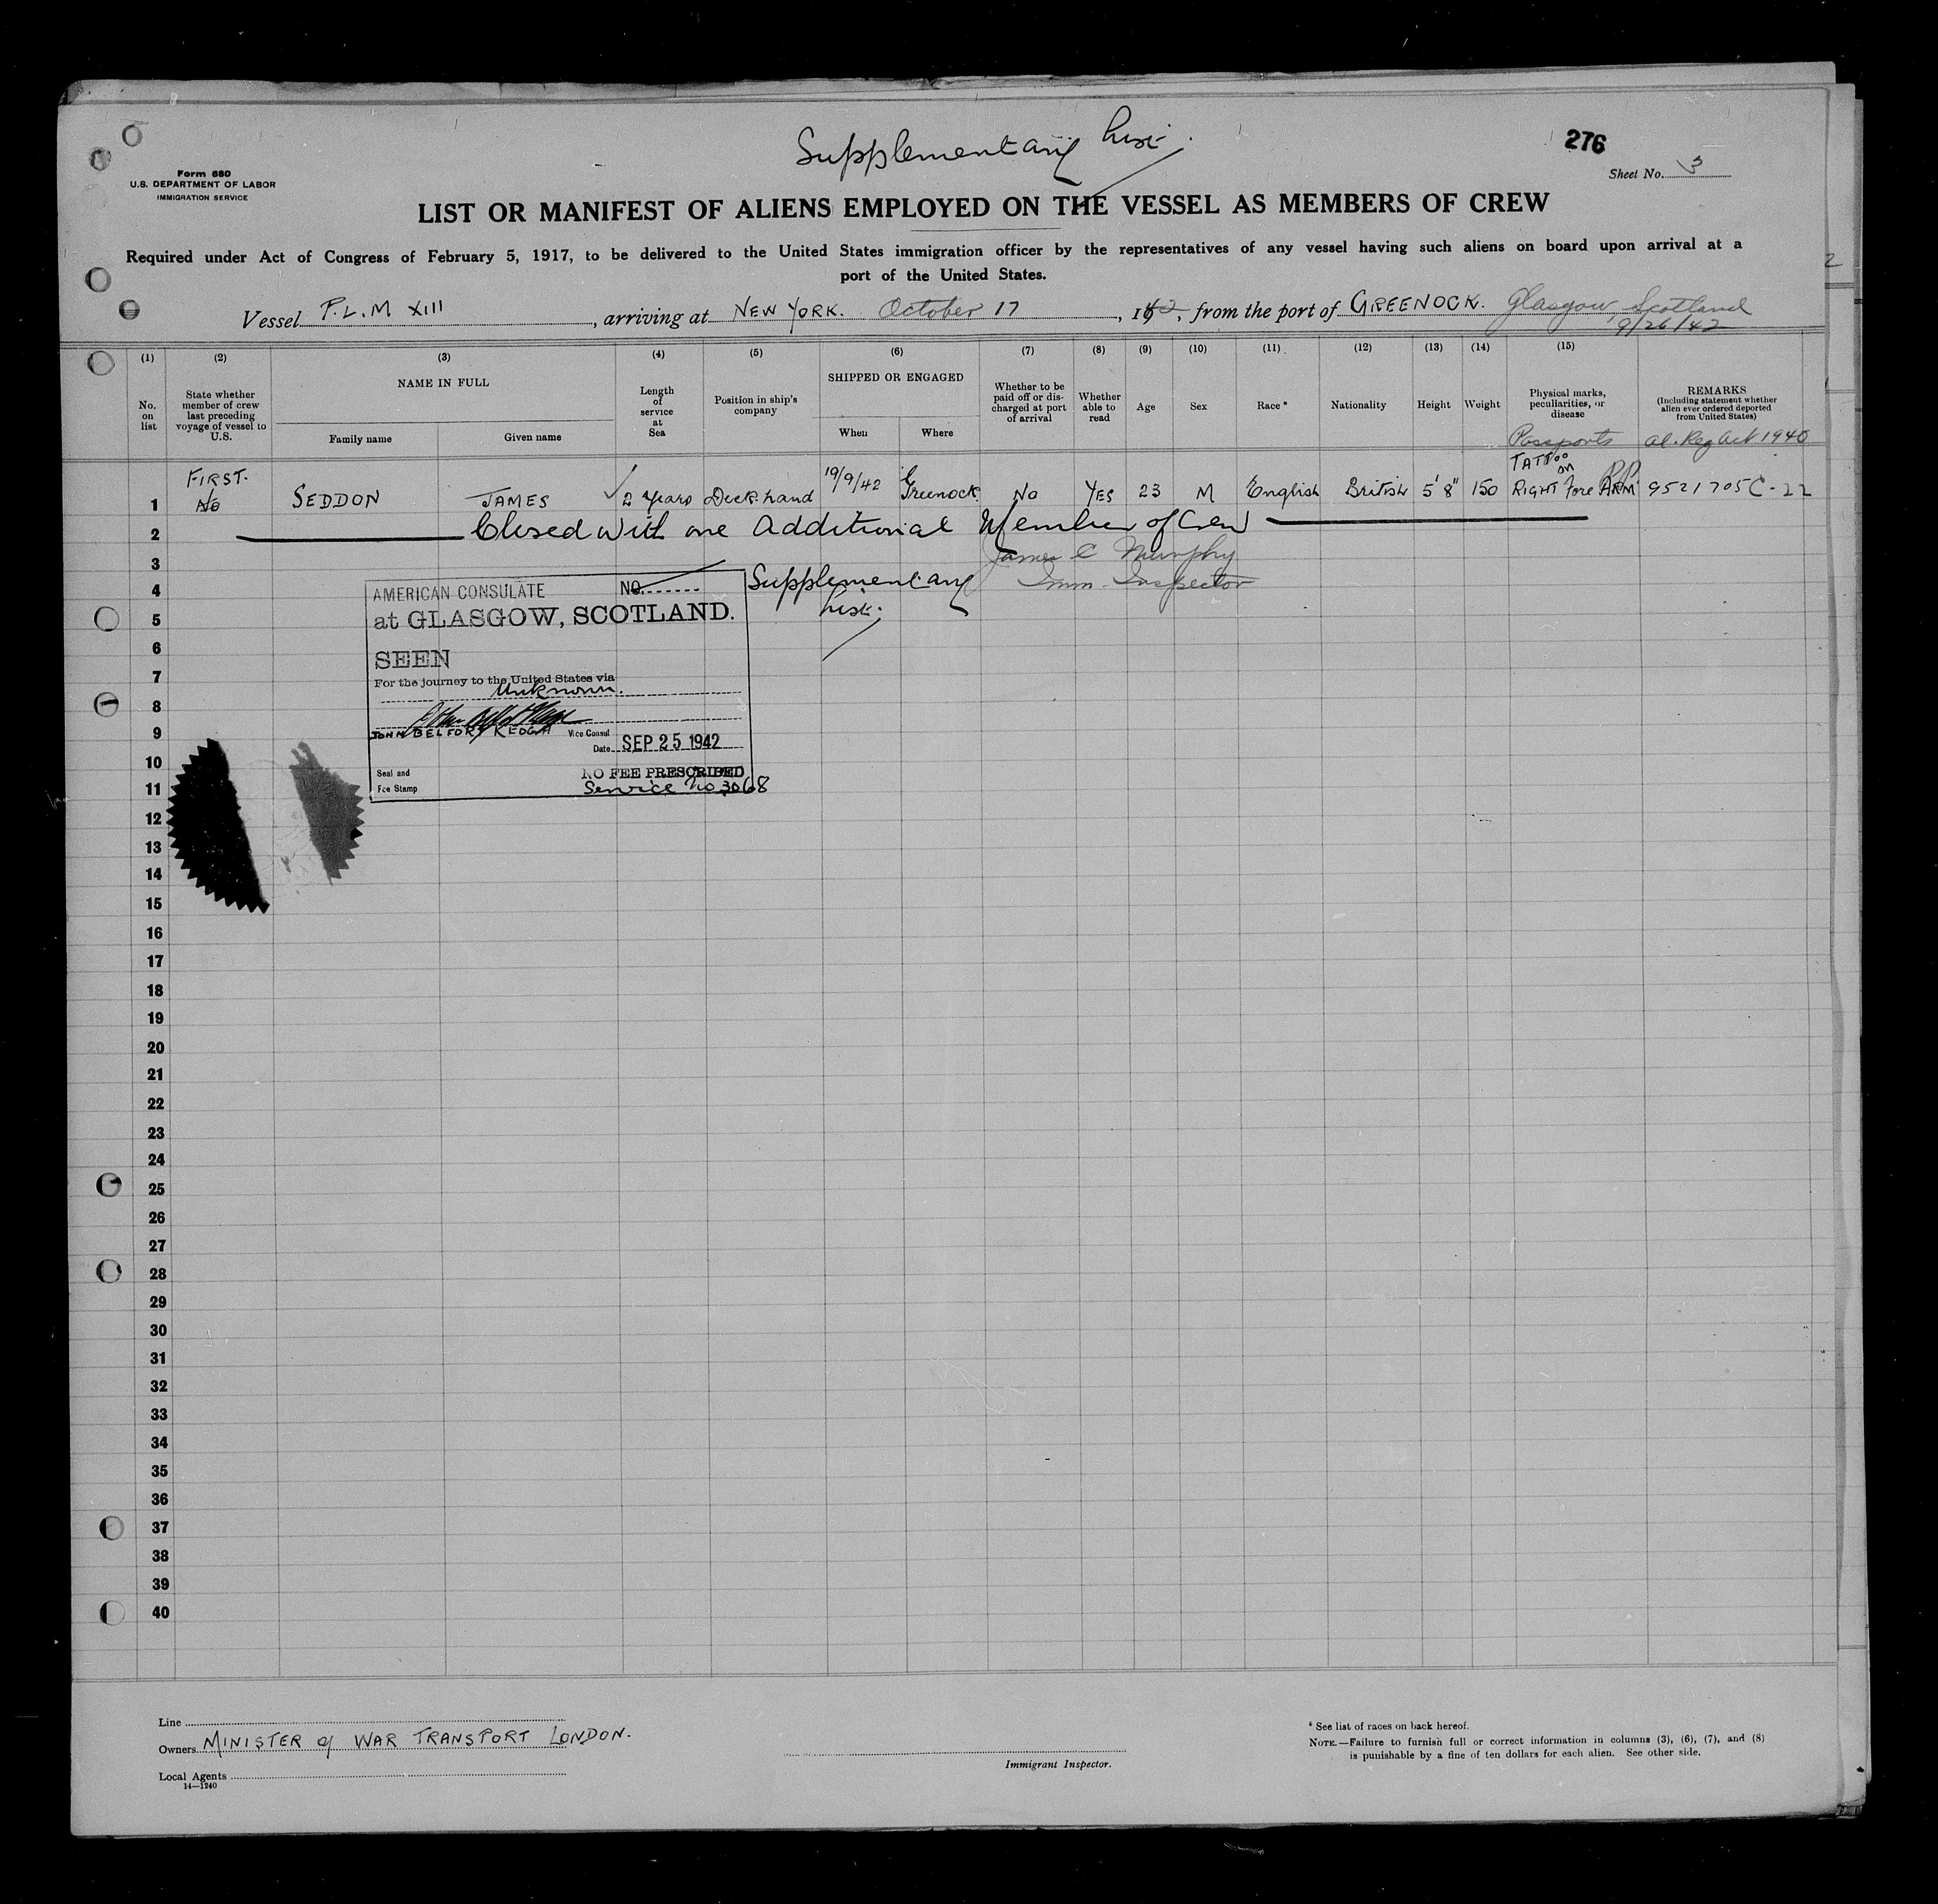 Supplementary List.
276
Sheet No. 3
Form 680
U.S. DEPARTMENT OF LABOR
IMMIGRATION SERVICE
LIST OR MANIFEST OF ALIENS EMPLOYED ON THE VESSEL AS MEMBERS OF CREW
Required under Act of Congress of February 5, 1917, to be delivered to the United States immigration officer by the representatives of any vessel having such aliens on board upon arrival at a
port of the United States.
Vessel P.L.M XIII, arriving at NEW YORK. October 17, 1942, from the port of GREENOCK. Glasgow, Scotland
9/26/42
(1) (2) (3) (4) (5) (6) (7) (8) (9) (10) (11) (12) (13) (14) (15)
No. on list
State whether member of crew last preceding voyage of vessel to U.S.
NAME IN FULL
Family name
Given name
Length of service at Sea
Position in ship's company
SHIPPED OR ENGAGED
When
Where
Whether to be paid off or discharged at port of arrival
Whether able to read
Age
Sex
Race *
Nationality
Height
Weight
Physical marks, peculiarities, or disease
REMARKS
(Including statement whether alien ever ordered deported from United States)
Passports
al. Reg Act 1940
1 FIRST. No SEDDON JAMES 2 Years Deckhand 19/9/42 Greenock. No YES 23 M English British 5' 8" 150 TATToo on RIGHT Fore ARM PP 9521705 C-22
2 Closed with one Additional Member of Crew
3 James C Murphy
4 Supplementary Imm Inspector
5 List.
6
7
8
9
10
11
12
13
14
15
16
17
18
19
20
21
22
23
24
25
26
27
28
29
30
31
32
33
34
35
36
37
38
39
40
AMERICAN CONSULATE NO.
at GLASGOW, SCOTLAND.
SEEN
For the journey to the United States via
Unknown.
JOHN BELFORT KEOGH Vice Consul
Date SEP 25 1942
Seal and NO FEE PRESCRIBED
Fee Stamp Service No 3068
Line
Owners MINISTER of WAR TRANSPORT LONDON.
Local Agents
14—1240
Immigrant Inspector.
* See list of races on back hereof.
NOTE.—Failure to furnish full or correct information in columns (3), (6), (7), and (8)
is punishable by a fine of ten dollars for each alien. See other side.